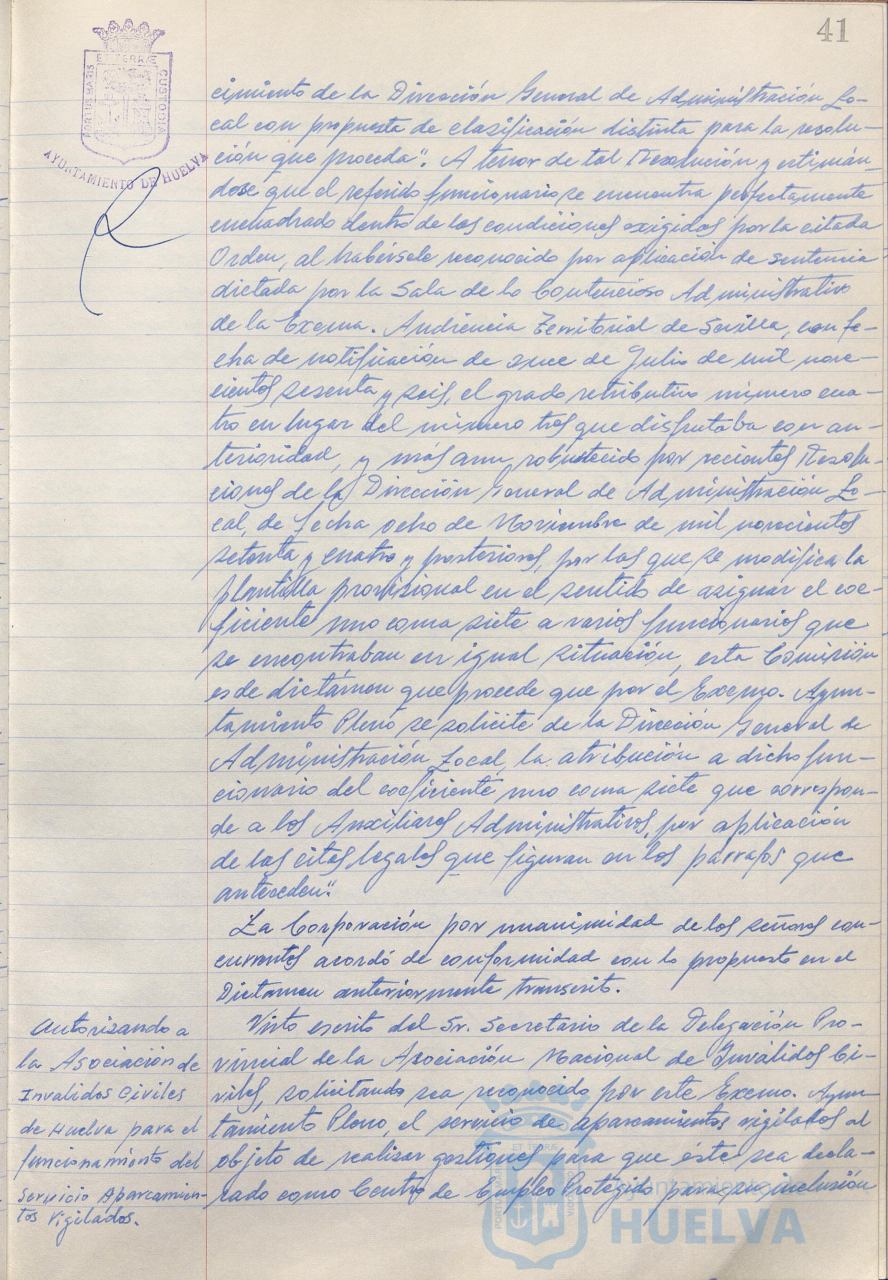 41
ET TERRÆ
PORTUS MARIS
CUSTODIA
AYUNTAMIENTO DE HUELVA
cimiento de la Dirección General de Administración Lo-
cal con propuesta de clasificación distinta para la resolu-
ción que proceda". A tenor de tal Resolución y estimán-
dose que el referido funcionario se encuentra perfectamente
encuadrado dentro de las condiciones exigidas por la citada
Orden, al habérsele reconocido por aplicación de sentencia
dictada por la Sala de lo Contencioso Administrativo
de la Excma. Audiencia Territorial de Sevilla, con fe-
cha de notificación de once de Julio de mil nove-
cientos sesenta y seis, el grado retributivo número cua-
tro en lugar del número tres que disfrutaba con an-
terioridad, y más aun robustecido por recientes Resolu-
ciones de la Dirección General de Administración Lo-
cal, de fecha ocho de Noviembre de mil novecientos
setenta y cuatro y posteriores, por las que se modifica la
plantilla provisional en el sentido de asignar el coe-
ficiente uno coma siete a varios funcionarios que
se encontraban en igual situación, esta Comisión
es de dictámen que procede que por el Excmo. Ayun-
tamiento Pleno se solicite de la Dirección General de
Administración Local, la atribución a dicho fun-
cionario del coeficiente uno coma siete que correspon-
de a los Auxiliares Administrativos, por aplicación
de las citas legales que figuran en los párrafos que
anteceden".
La Corporación por unanimidad de los señores con-
currentes acordó de conformidad con lo propuesto en el
Dictamen anteriormente transcrito.
Autorizando a
la Asociación de
Invalidos Civiles
de Huelva para el
funcionamiento del
Servicio Aparcamien-
tos Vigilados.
Visto escrito del Sr. Secretario de la Delegación Pro-
vincial de la Asociación Nacional de Inválidos Ci-
viles, solicitando sea reconocido por este Excmo. Ayun-
tamiento Pleno, el servicio de aparcamientos vigilados al
objeto de realizar gestiones para que éste sea decla-
rado como Centro de Empleo Protegido para su inclusión
Ayuntamiento de
HUELVA